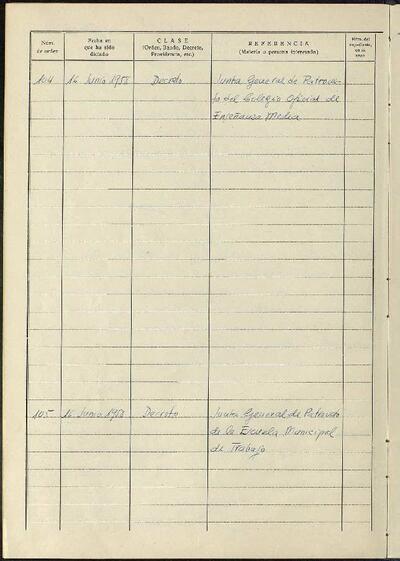 Núm. de orden
Fecha en que ha sido dictado
CLASE
(Orden, Bando, Decreto, Providencia, etc.)
REFERENCIA
(Materia o persona interesada)
Núm. del expediente,
104 14 Junio 1958 Decreto Junta General de Patrona-
to del Colegio Oficial de
Enseñanza Media
105 16 Junio 1958 Decreto Junta General de Patronato
de la Escuela Municipal
de Trabajo